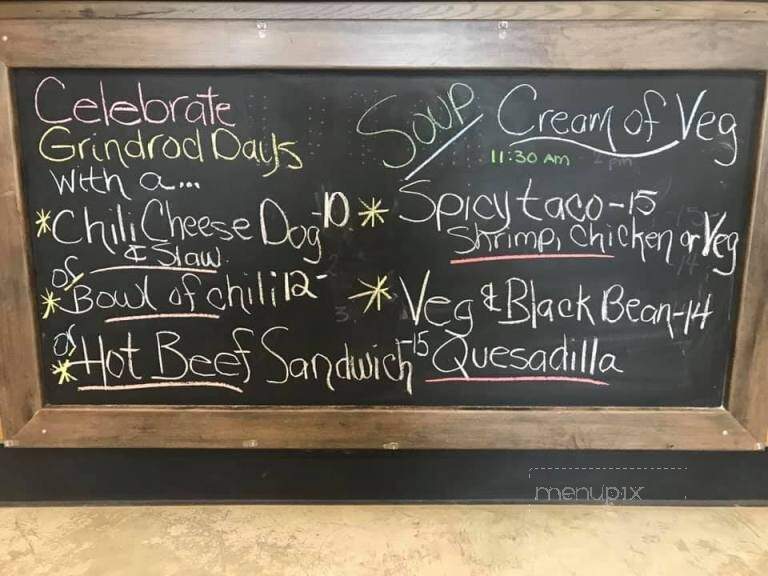 Celebrate
Grindrod Days
with a...
* Chili Cheese Dog -10
& Slaw
or
* Bowl of chili 12-
or
* Hot Beef Sandwich -15
Soup Cream of Veg
11:30 am
* Spicy taco -15
Shrimp, chicken or Veg
* Veg & Black Bean -14
Quesadilla
menupix